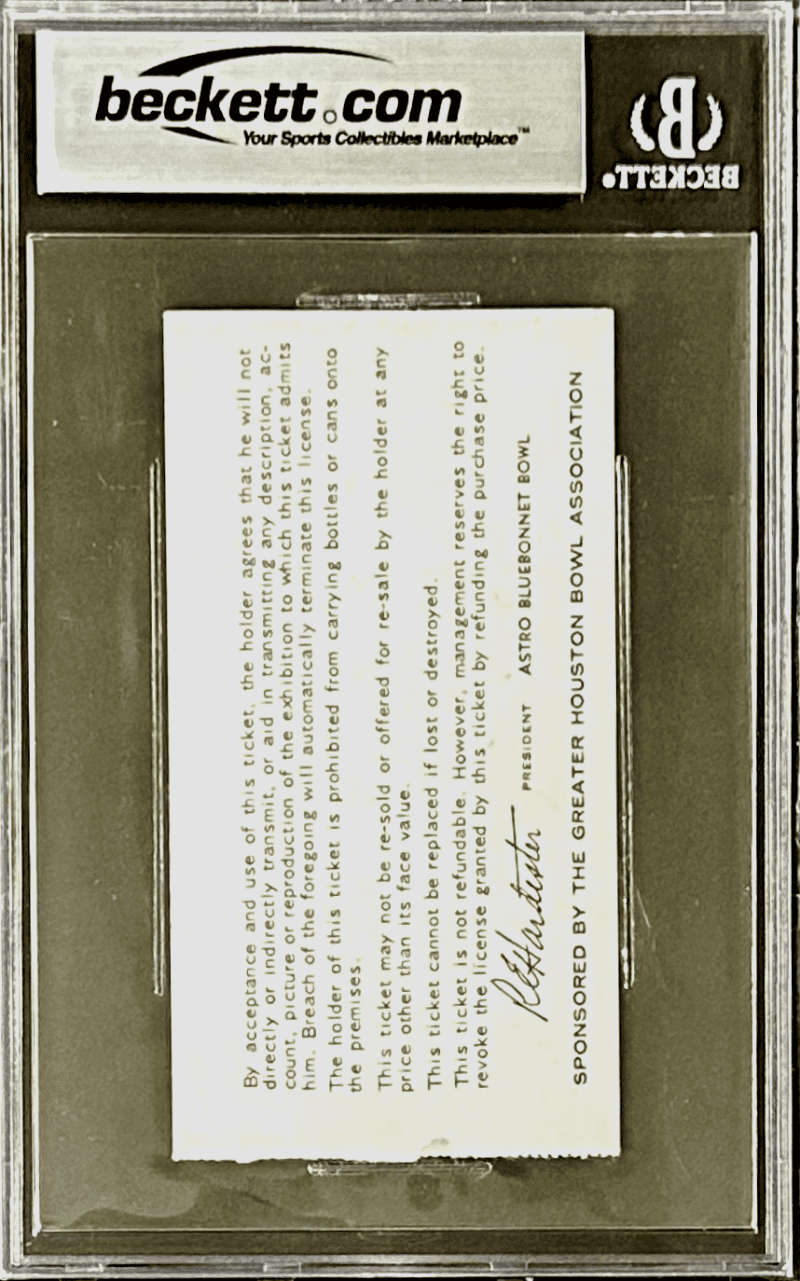 beckett.com
Your Sports Collectibles Marketplace™
BECKETT
By acceptance and use of this ticket, the holder agrees that he will not
directly or indirectly transmit, or aid in transmitting any description, ac-
count, picture or reproduction of the exhibition to which this ticket admits
him. Breach of the foregoing will automatically terminate this license.
The holder of this ticket is prohibited from carrying bottles or cans onto
the premises.
This ticket may not be re-sold or offered for re-sale by the holder at any
price other than its face value.
This ticket cannot be replaced if lost or destroyed.
This ticket is not refundable. However, management reserves the right to
revoke the license granted by this ticket by refunding the purchase price.
REHardister PRESIDENT ASTRO BLUEBONNET BOWL
SPONSORED BY THE GREATER HOUSTON BOWL ASSOCIATION